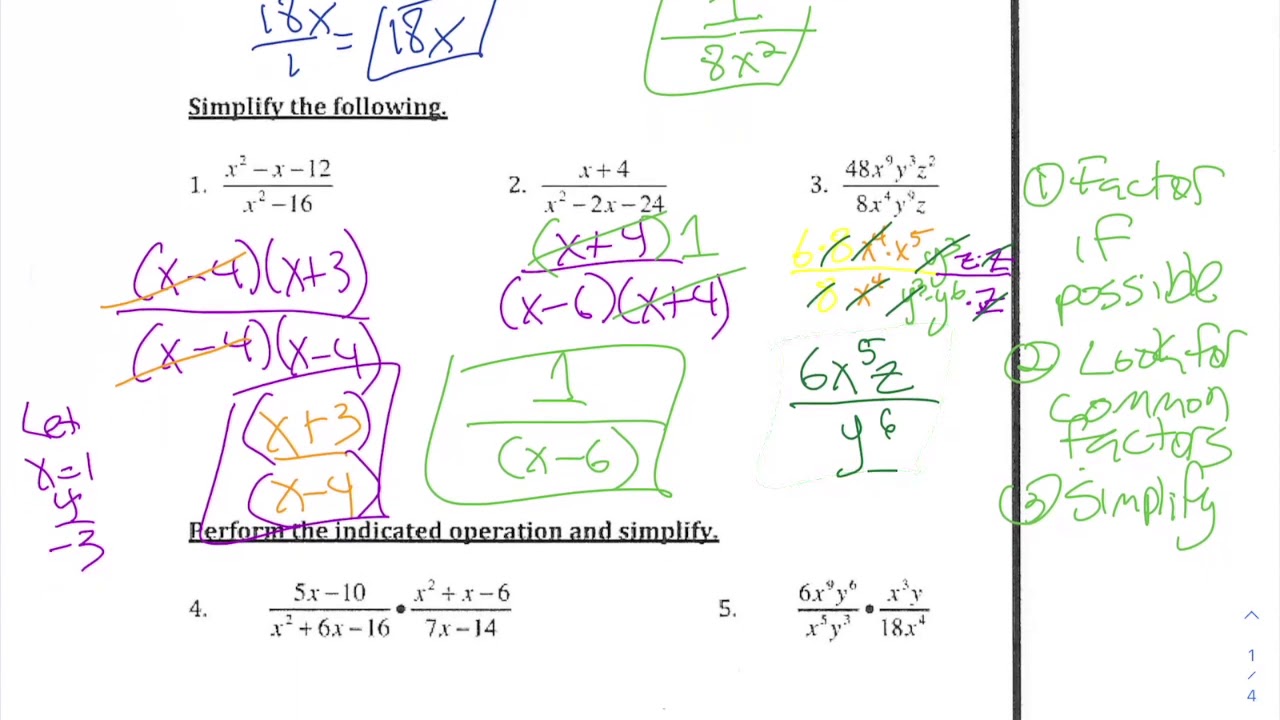 18x/1 = 18x
1/8x²
Simplify the following.
1. (x² − x − 12)/(x² − 16)
2. (x + 4)/(x² − 2x − 24)
3. 48x⁹y³z²/8x⁴y⁹z
(x−4)(x+3)/(x−4)(x−4)
(x+4) 1/(x−6)(x+4)
6·8 x⁴·x⁵ y³ z·z/8 x⁴ y³·y⁶ ·z
(x+3)/(x−4)
1/(x−6)
6x⁵z/y⁶
Let
x=1
4/−3
① Factor
if
possible
② Look for
common
factors
③ Simplify
Perform the indicated operation and simplify.
4. (5x − 10)/(x² + 6x − 16) • (x² + x − 6)/(7x − 14)
5. 6x⁹y⁶/x⁵y³ • x³y/18x⁴
1
/
4